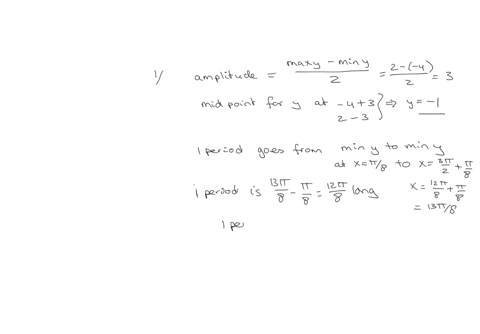 1/ amplitude = (max y − min y)/2 = (2−(−4))/2 = 3
mid point for y at −4+3 } ⇒ y = −1
2−3
1 period goes from min y to min y
at x=π/8 to x= 3π/2 + π/8
1 period is 13π/8 − π/8 = 12π/8 long
x= 12π/8 + π/8
= 13π/8
1 pe